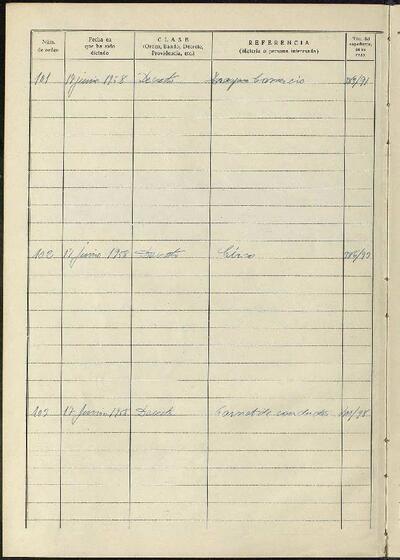 Núm. de orden
Fecha en que ha sido dictado
CLASE (Orden, Bando, Decreto, Providencia, etc.)
REFERENCIA (Materia o persona interesada)
Núm. del expediente, en su caso
101 17 junio 1958 Decreto Comercio
102 17 junio 1958 Decreto Circo
103 17 Junio 1958 Decreto Carnet de conductor